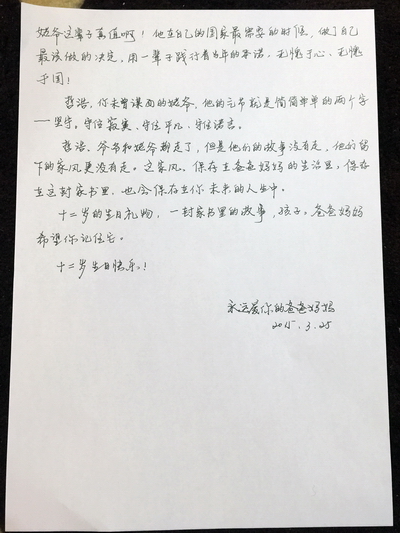 姥爷这辈子真值啊！他在自己的国家最需要的时候，做了自己
最该做的决定，用一辈子践行着当年的承诺。无愧于心、无愧
于国！
哲浩，你未曾谋面的姥爷，他的元节就是简简单单的两个字
—坚守。守住寂寞、守住平凡、守住诺言。
哲浩，爷爷和姥爷都走了，但是他们的故事没有走，他们留
下的家风更没有走。这家风，保存在爸爸妈妈的生活里，保存
在这封家书里，也会保存在你未来的人生中。
十二岁的生日礼物，一封家书里的故事，孩子，爸爸妈妈
希望你记住它。
十二岁生日快乐！
永远爱你的爸爸妈妈
2015.3.25